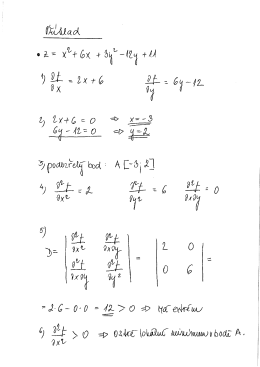 Příklad
• z = x² + 6x + 3y² - 12y + 11
1) ∂f/∂x = 2x + 6   ∂f/∂y = 6y - 12
2) 2x + 6 = 0 ⇒ x = -3
6y - 12 = 0 ⇒ y = 2
3) podezřelý bod: A [-3; 2]
4) ∂²f/∂x² = 2   ∂²f/∂y² = 6   ∂²f/∂x∂y = 0
5)
D = | ∂²f/∂x² ∂²f/∂x∂y | = | 2 0 | =
| ∂²f/∂x∂y ∂²f/∂y² | | 0 6 |
= 2·6 - 0·0 = 12 > 0 ⇒ má extrém
6) ∂²f/∂x² > 0 ⇒ ostré lokální minimum v bodě A.